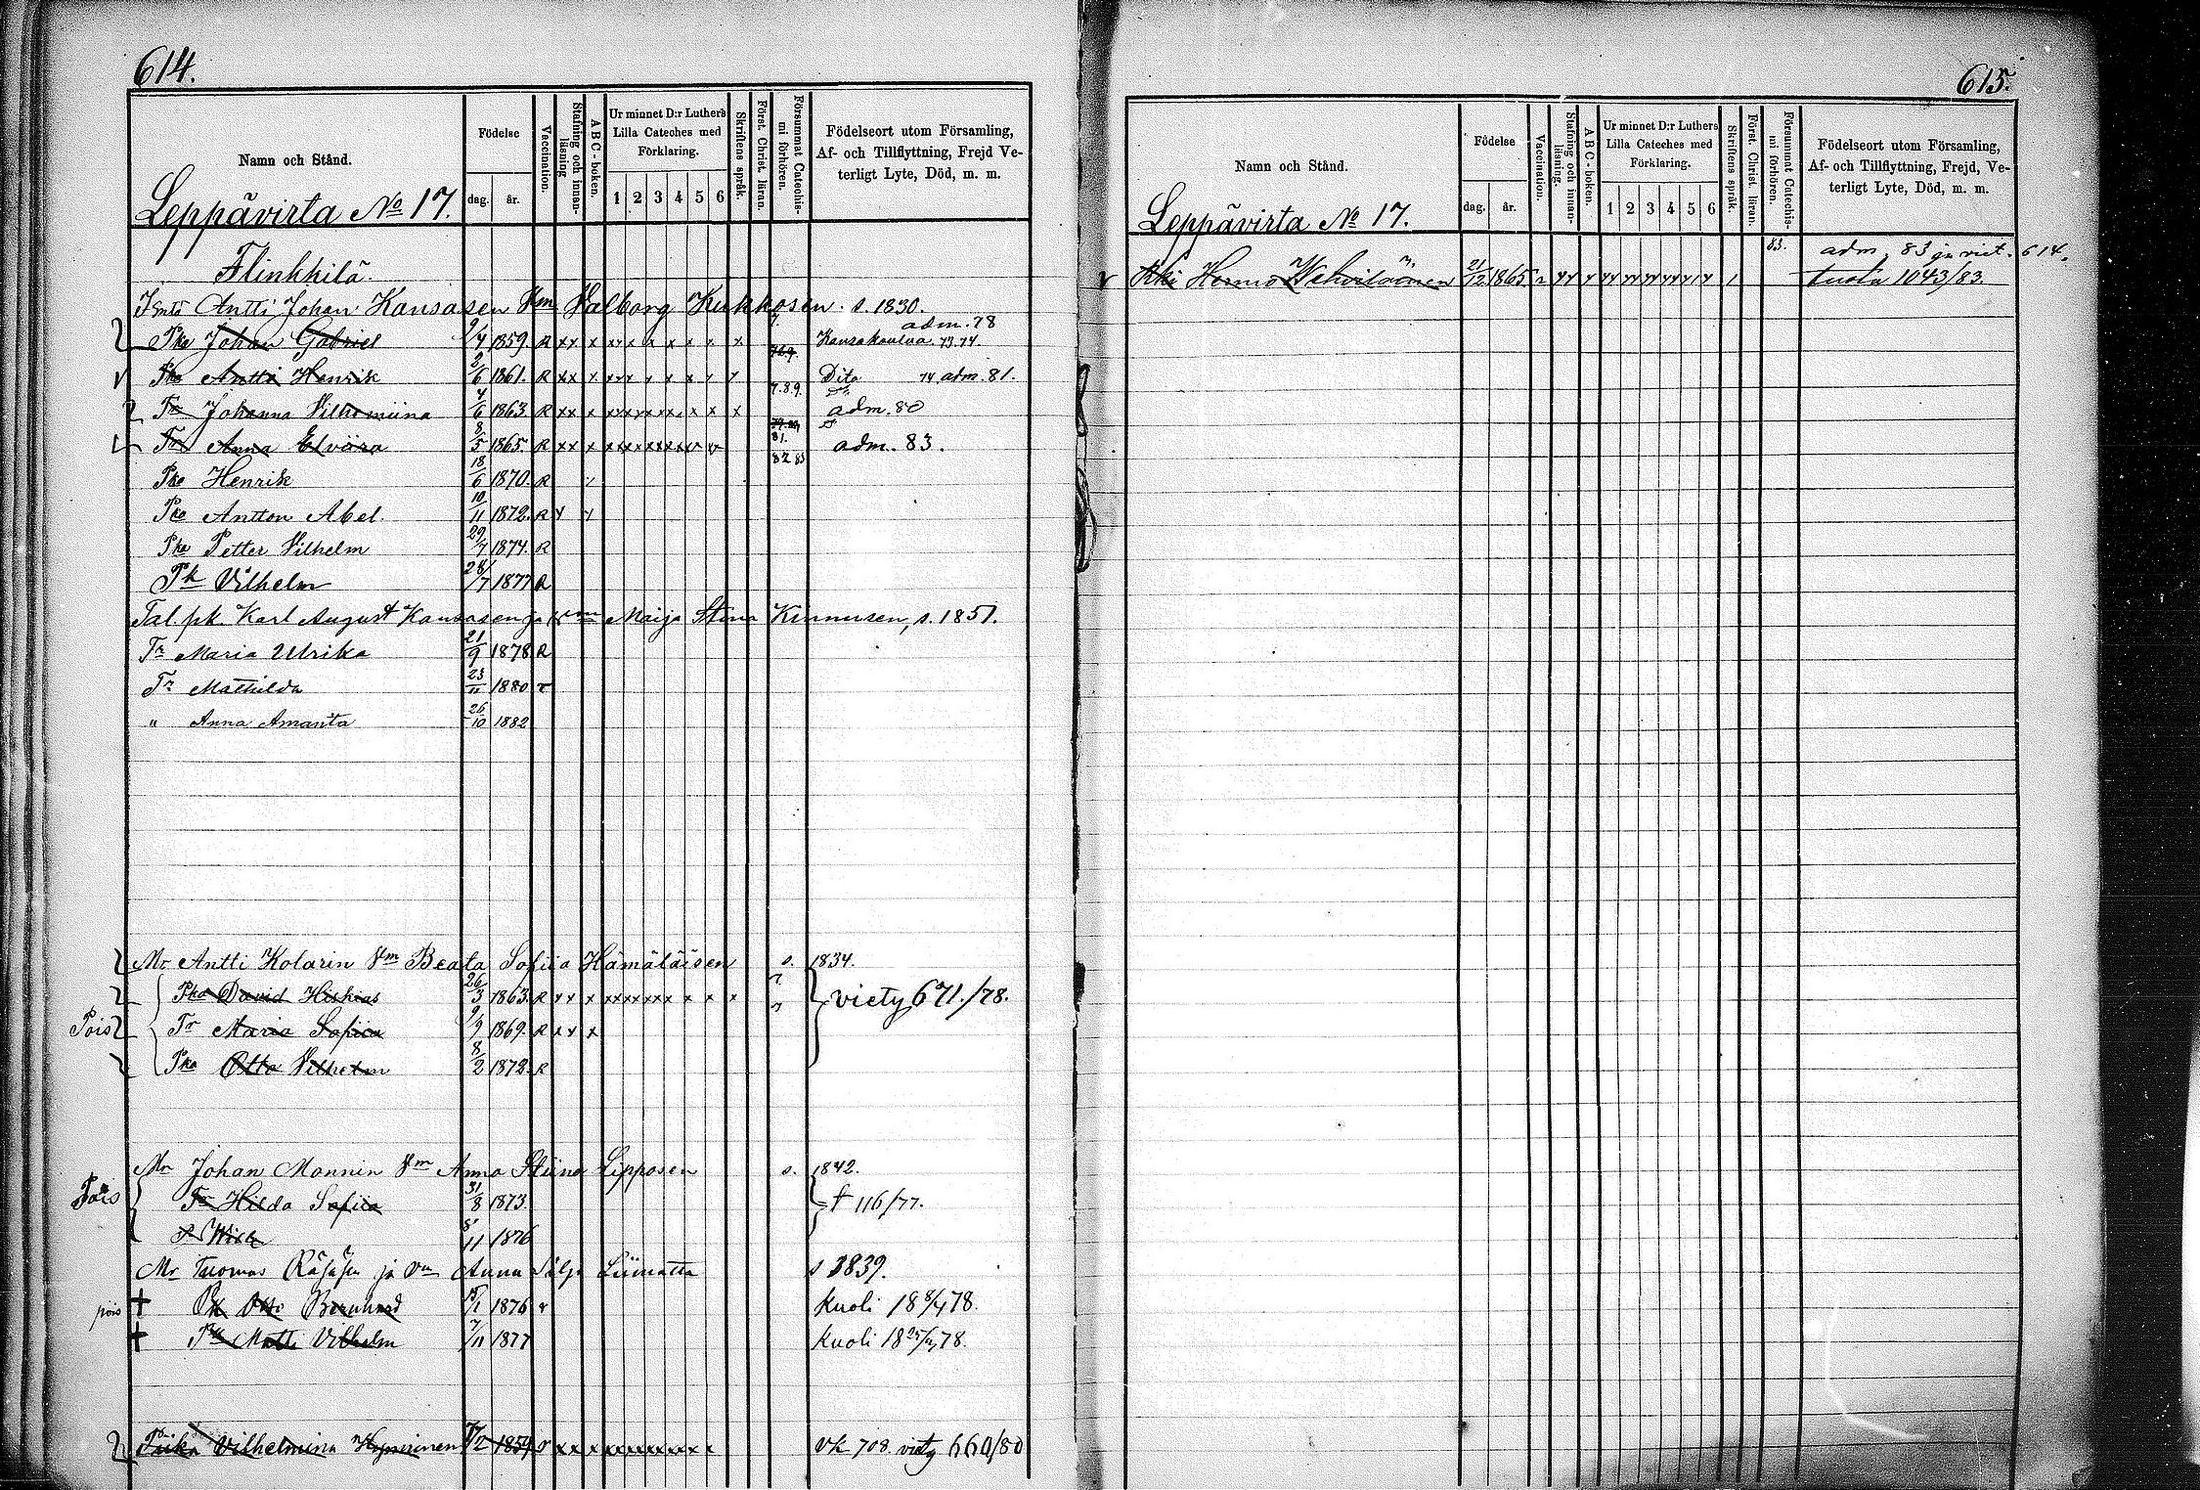 614.
Namn och Stånd.
Födelse
dag.
år.
Vaccination.
Stafning och innan-läsning
ABC-boken.
Ur minnet D:r Luthers
Lilla Cateches med
Förklaring.
1 2 3 4 5 6
Skriftens språk.
Först. Christ. läran.
Försummat Catechis-
mi förhören.
Födelseort utom Församling,
Af- och Tillflyttning, Frejd Ve-
terligt Lyte, Död, m. m.
Leppävirta No 17.
Flinkkilä.
Antti Johan Kansasen Vm Valborg Kukkosen s. 1830.
Pka Johan Gabriel 9/4 1859. R x x x x x x x x x x x adm. 78
Kansakoulua. 73.74.
Pka Antti Henrik 2/6 1861. R Dito 74 adm. 81.
7.8.9.
Tr Johanna Vilhemiina 4/6 1863. R adm. 80
Tr Anna Elviira 8/5 1865. R 81. adm. 83.
82 83
Pka Henrik 18/6 1870. R
Pka Antton Abel. 10/11 1872. R
Pka Petter Vilhelm 29/7 1874. R
Pk Vilhelm 28/7 1877 R
Tal. pk Karl August Kansasen ja vm Maija Stina Kinnusen, s. 1851.
Tr Maria Ulrika 21/9 1878 R
Tr Mathilda 23/11 1880 r
" Anna Amanta 26/10 1882
Mr Antti Kolarin Vm Beata Sofiia Hämäläisen s. 1834.
Pka David Hiskias 26/3 1863. R viety 671./78.
Pois Tr Maria Sofiia 9/9 1869. R x x x
Pka Otto Vilhelm 8/2 1872. R
Mr Johan Monnin Vm Anna Stiina Lipposen s. 1842.
Pois Tr Hilda Sofiia 31/8 1873. f 116/77.
8/11 1876
Mr Tuomas Räsäsen ja vm Anna Liimatta s 1839.
pois † Pk Otto Bernhard 15/1 1876 r Kuoli 18 8/4 78.
† Pk Matti Vilhelm 7/11 1877 Kuoli 18 78.
Piika Vilhelmina Hyvärinen 1859 708. viety 660/80
615.
Namn och Stånd.
Födelse
dag.
år.
Vaccination.
Stafning och innan-läsning.
ABC-boken.
Ur minnet D:r Luthers
Lilla Cateches med
Förklaring.
1 2 3 4 5 6
Skriftens språk.
Först. Christ. läran.
Försummat Catechis-
mi förhören.
Födelseort utom Församling,
Af- och Tillflyttning, Frejd, Ve-
terligt Lyte, Död, m. m.
Leppävirta No 17.
83. adm, 83 ja viet. 614.
21/12 1865. tuotu 1043/83.